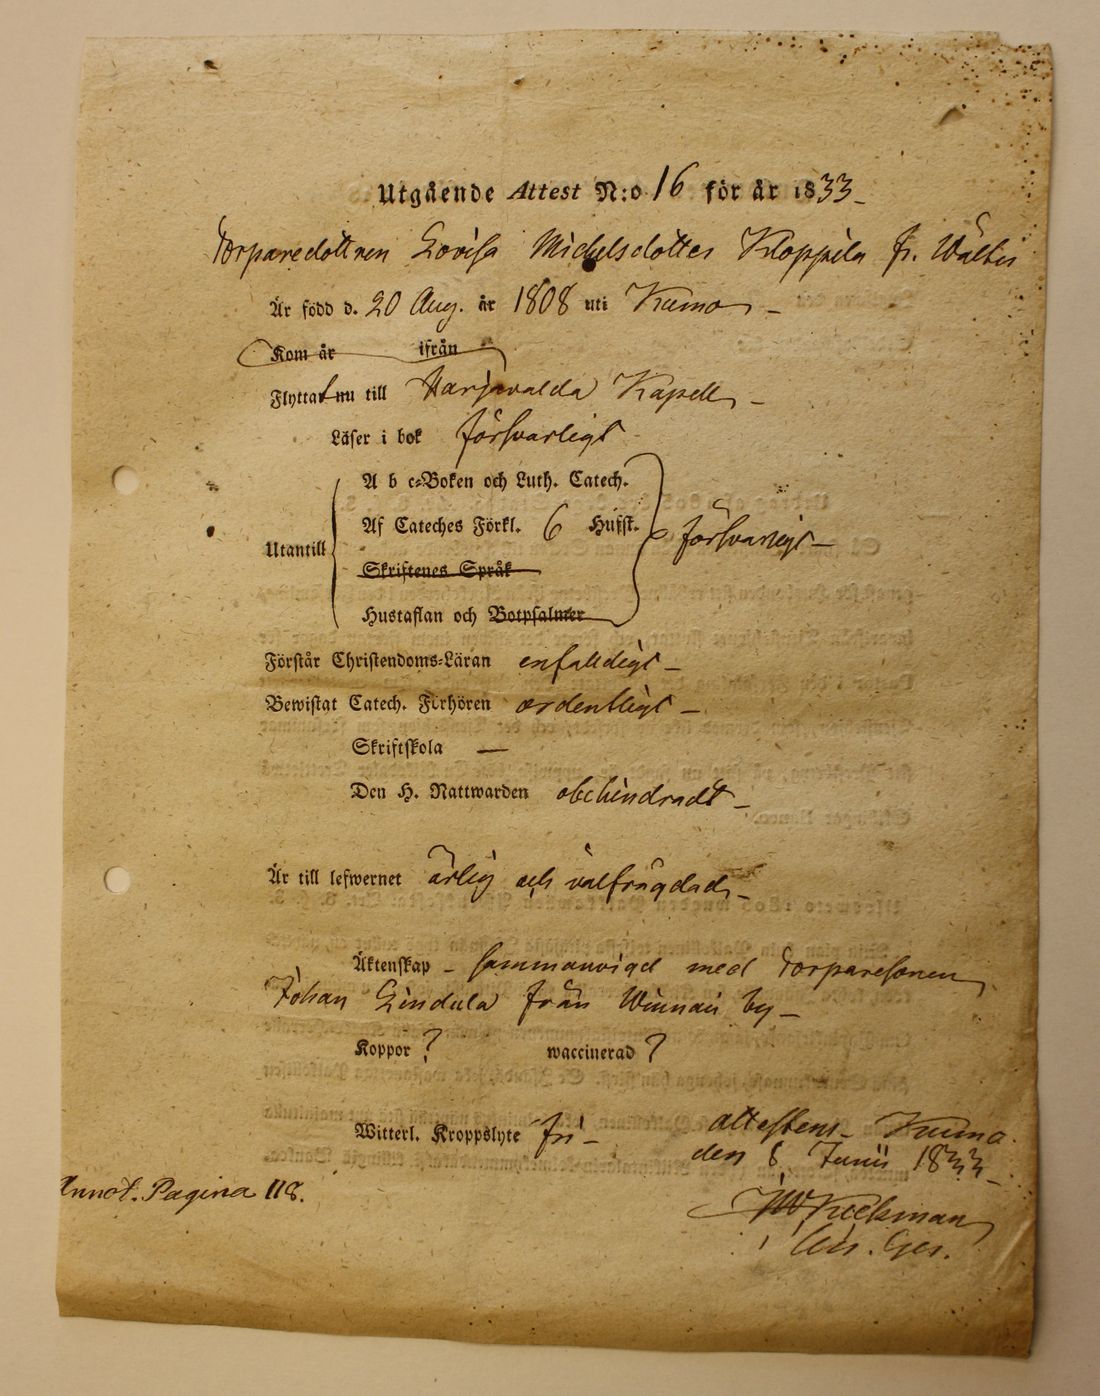 Utgående Attest N:o 16 för år 1833
Torparedottren Lovisa Michelsdotter Kloppila fr. Wälbis
Är född d. 20 Aug. år 1808 uti Kumo
Kom år ifrån
Flyttar nu till Harjavalda Kapell
Läser i bok försvarligt
A b c-Boken och Luth. Catech.
Af Cateches Förkl. 6 Hufst. försvarligt
Utantill
Skriftenes Språk
Hustaflan och Botpsalmer
Förstår Christendoms-Läran enfaldigt
Bewistat Catech. Förhören ordentligt
Skriftskola —
Den H. Nattwarden obehindradt
Är till lefwernet ärlig och välfrägdad
Äktenskap - sammanvigd med Torparesonen
Johan Lindula från Winnari by
Koppor ? waccinerad ?
Witterl. Kroppslyte fri
attesteras Kumo
den 8 Junii 1833
Annot. Pagina 118.